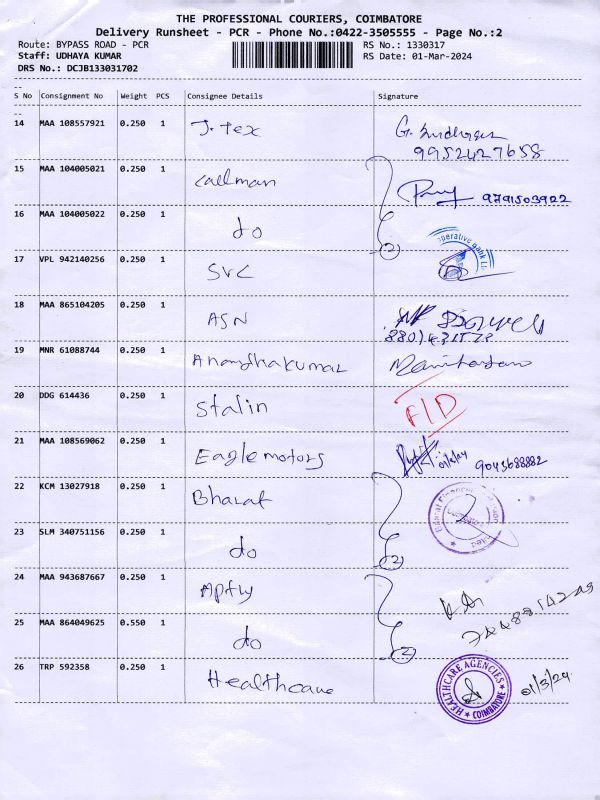 THE PROFESSIONAL COURIERS, COIMBATORE
Delivery Runsheet - PCR - Phone No.:0422-3505555 - Page No.:2
Route: BYPASS ROAD - PCR RS No.: 1330317
Staff: UDHAYA KUMAR RS Date: 01-Mar-2024
DRS No.: DCJB133031702
S No Consignment No Weight PCS Consignee Details Signature
14 MAA 108557921 0.250 1 J. Tex
9952427658
15 MAA 104005021 0.250 1 Callman 9791503922
16 MAA 104005022 0.250 1 do 2
17 VPL 942140256 0.250 1 SVC
18 MAA 865104205 0.250 1 ASN
19 MNR 61088744 0.250 1 Ananthakumar
20 DDG 614436 0.250 1 Stalin F/D
21 MAA 108569062 0.250 1 Eagle motors 01/3/24 9043688882
22 KCM 13027918 0.250 1 Bharat
23 SLM 340751156 0.250 1 do 2
24 MAA 943687667 0.250 1 Aptly
25 MAA 864049625 0.550 1 do 2
26 TRP 592358 0.250 1 Healthcare HEALTHCARE AGENCIES COIMBATORE 01/3/24